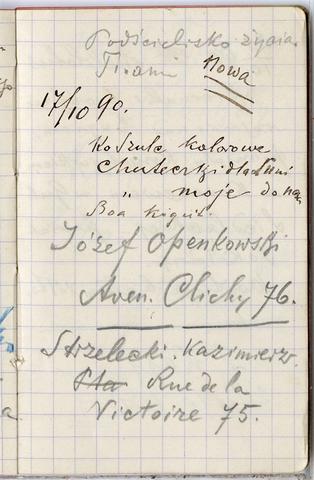 Podścielisko życia.
Tirami Nowa
17/10 90.
Koszule kolorowe
Chusteczki dla
„ moje do
Boa
Józef Openkowski
Aven. Clichy 76.
Strzelecki. Kazimierz.
Rue de la
Victoire 75.